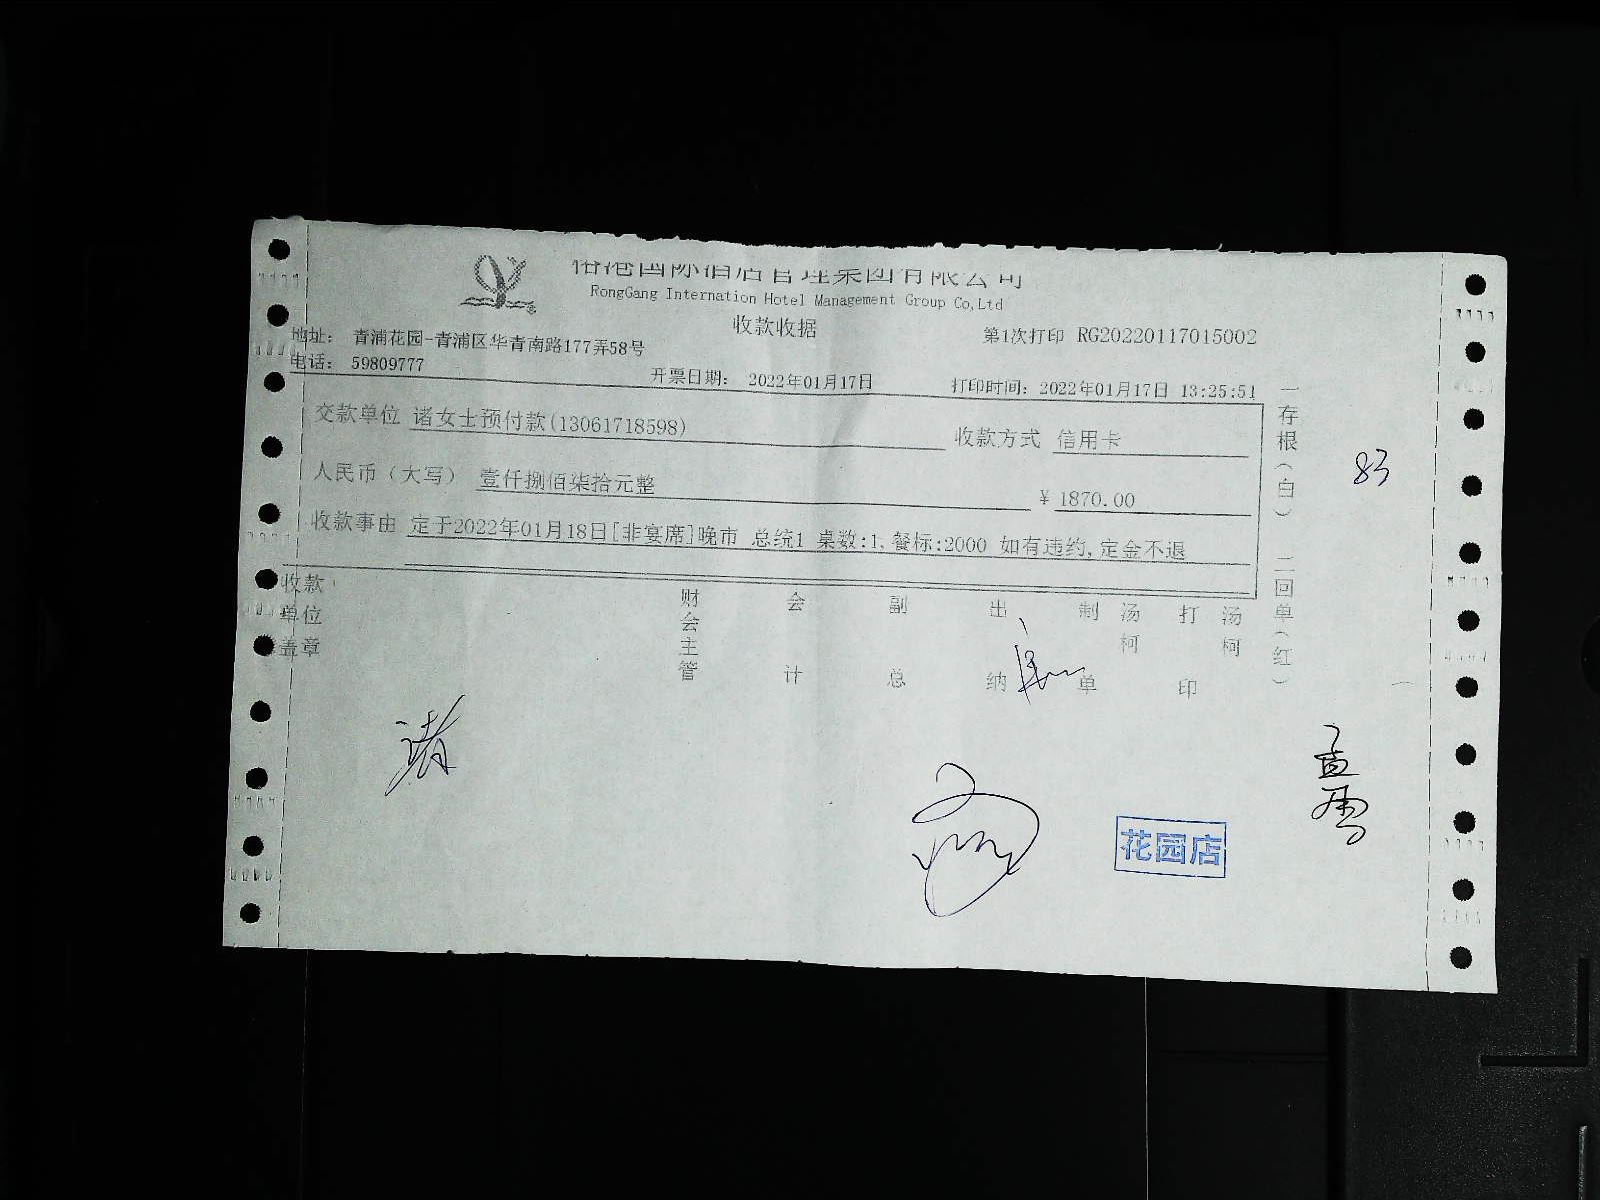 港国际酒店管理集团有限公司
RongGang Internation Hotel Management Group Co,Ltd
收款收据
第1次打印 RG20220117015002
地址: 青浦花园-青浦区华青南路177弄58号
电话: 59809777
开票日期: 2022年01月17日
打印时间: 2022年01月17日 13:25:51
交款单位 诸女士预付款(13061718598)
收款方式 信用卡
人民币(大写) 壹仟捌佰柒拾元整
¥ 1870.00
收款事由 定于2022年01月18日[非宴席]晚市 总统1 桌数:1, 餐标:2000 如有违约,定金不退
收款单位盖章
财会主管
会计
副总
出纳
制单
汤柯
打印
汤柯
一存根(白) 二回单(红)
83
诸
花园店